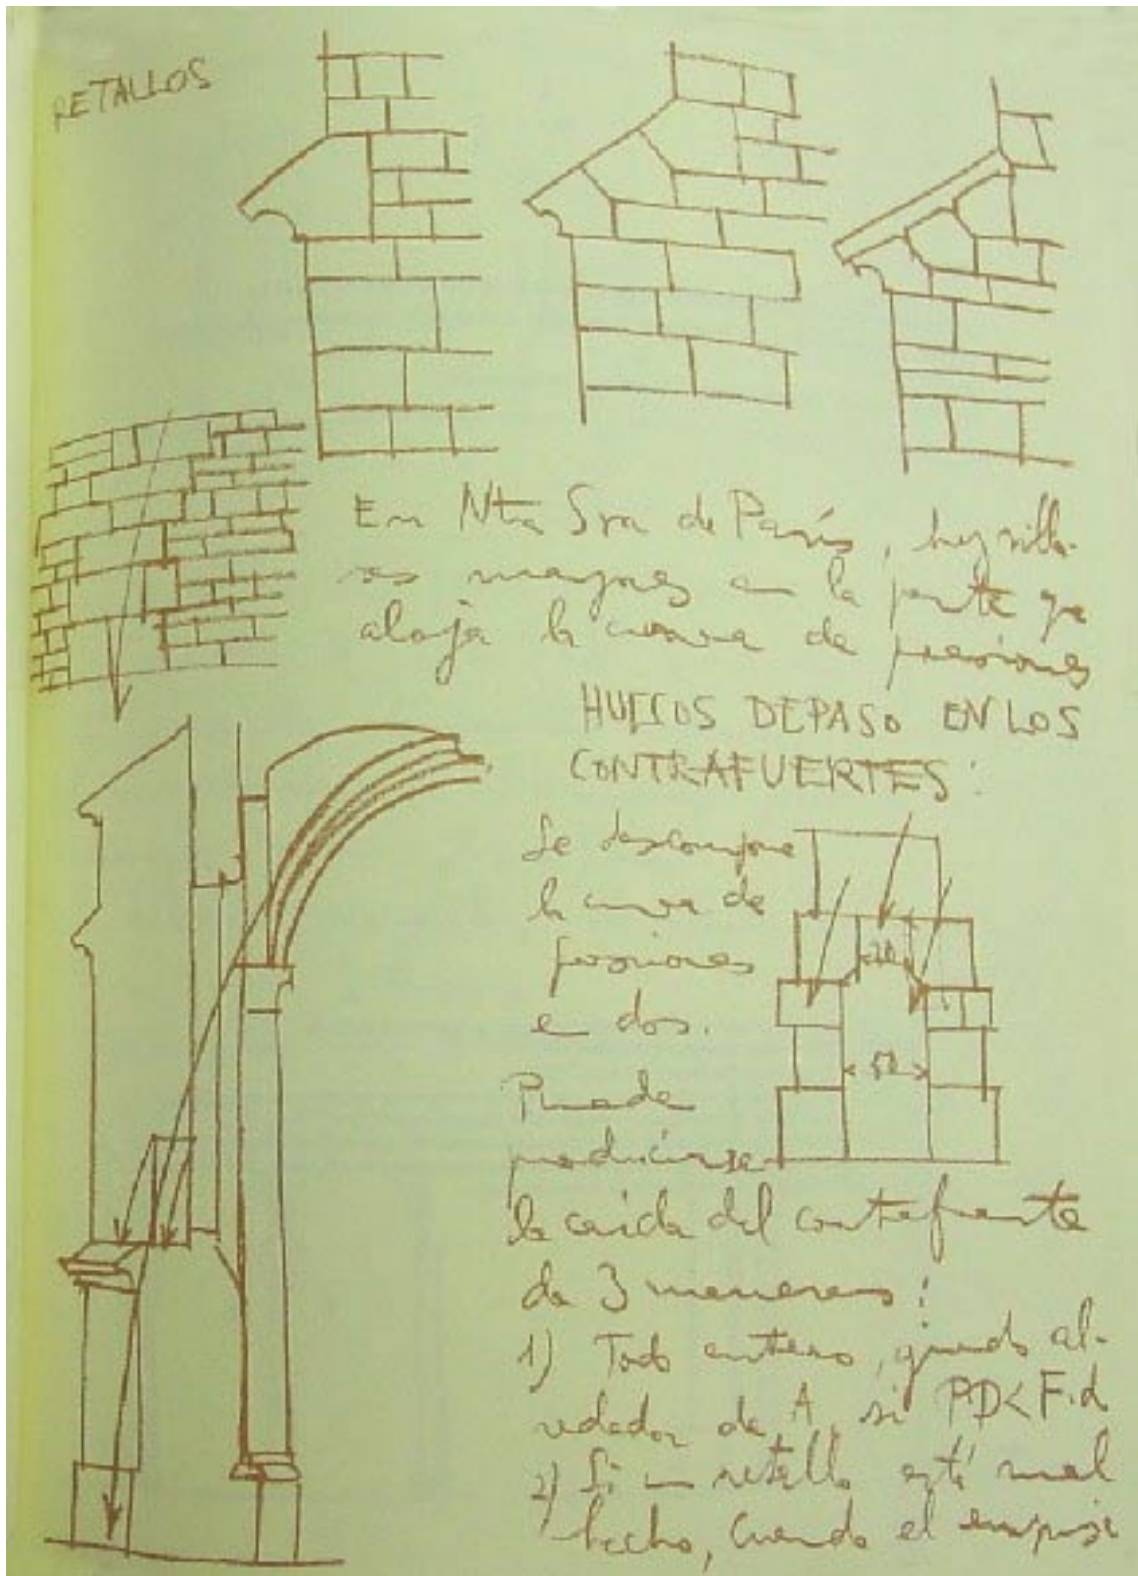 RETALLOS
En Ntra Sra de París, hay silla-
res mayores en la parte que
aloja la curva de presiones
HUECOS DE PASO EN LOS
CONTRAFUERTES:
Se descompone
la curva de
presiones
en dos.
Puede
producirse
la caída del contrafuerte
de 3 maneras:
1) Todo entero, girando al-
rededor de A, si PD<F.d
2) Si un retallo está mal
hecho, cuando el empuje